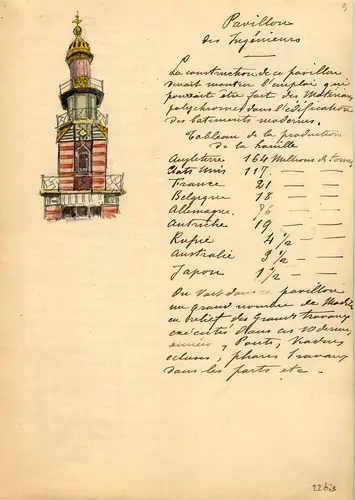 9
Pavillon
des Ingénieurs
La construction de ce pavillon
devait montrer l'emploi qui
pouvait être fait des Matériaux
polychromes dans l'édification
des batiments modernes.
Tableau de la production
de la houille
Angleterre 164 Millions de Tonnes
Etats Unis 117. —
France 21 — —
Belgique 18 — —
Allemagne. — —
Autriche 19 — —
Russie 4 1/2 — —
Australie 3 1/2 — —
Japon 1 1/2 — —
On voit dans ce pavillon
un grand nombre de Modèles
en relief des Grands travaux
exécutés dans ces dernières
années, Ponts, Viaducs
ecluses, phares Travaux
dans les ports etc.
22 bis